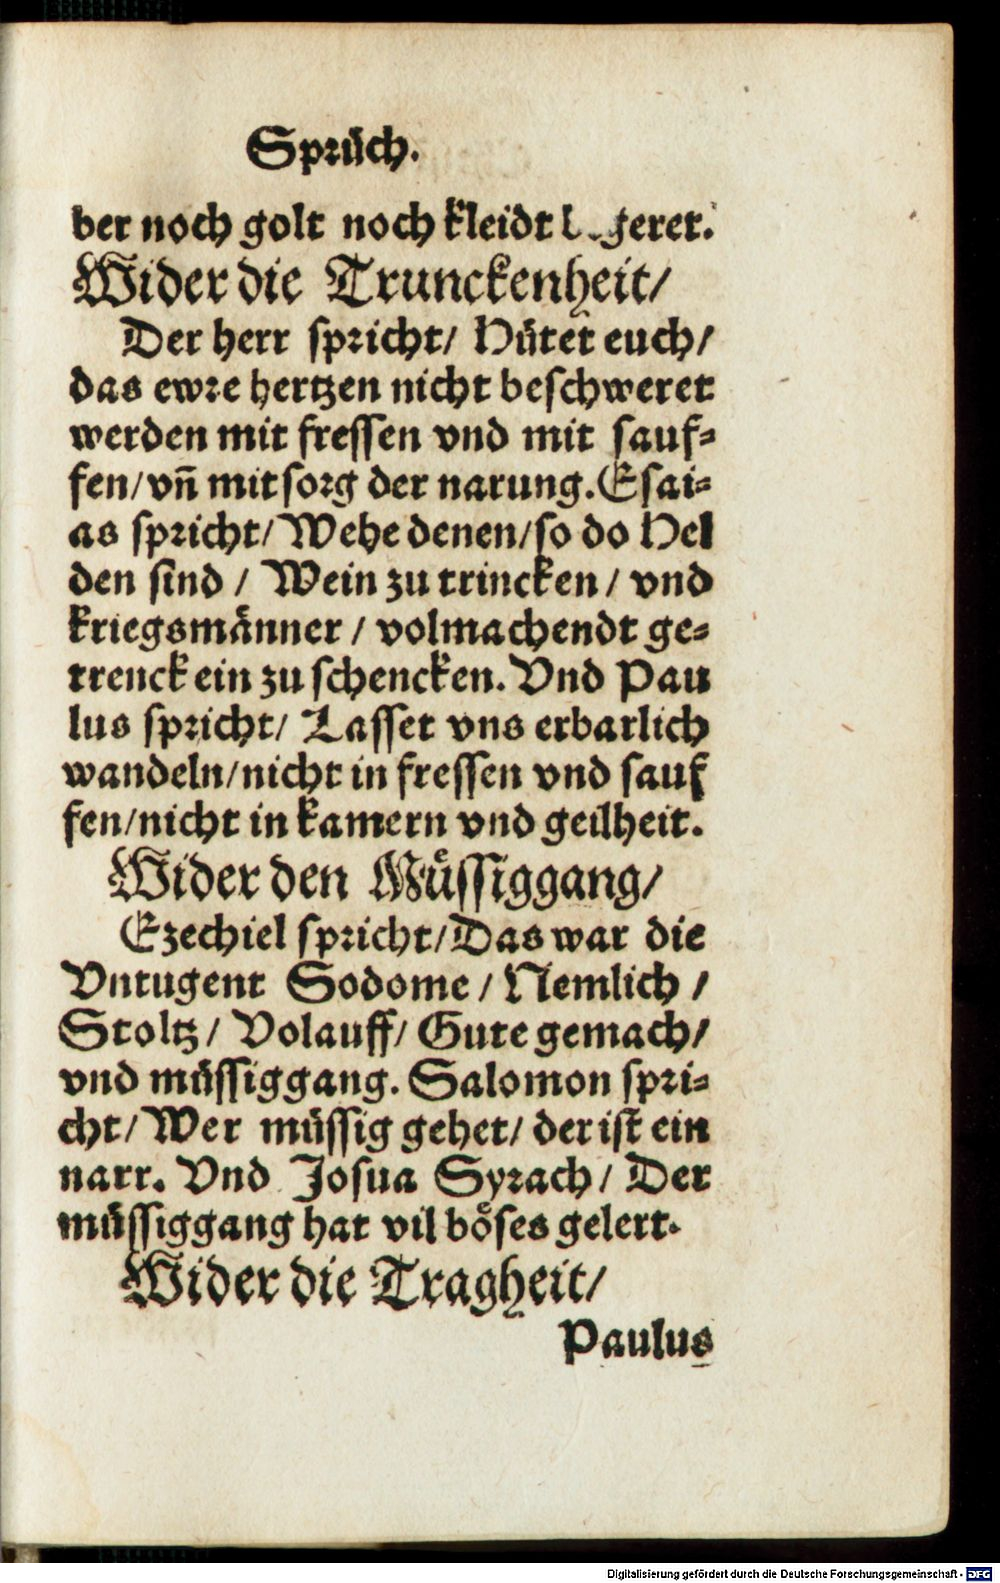 Sprüch.
ber noch golt noch kleidt
Wider die Trunckenheit/
Der herr spricht/ Hütet euch/
das ewre hertzen nicht beschweret
werden mit fressen vnd mit sauf⸗
fen/vñ mit sorg der narung. Esai⸗
as spricht/ Wehe denen/so do Hel
den sind / Wein zu trincken / vnd
kriegsmänner / volmachendt ge⸗
trenck ein zu schencken. Vnd Pau
lus spricht/ Lasset vns erbarlich
wandeln/nicht in fressen vnd sauf
fen/nicht in kamern vnd geilheit.
Wider den Müssiggang/
Ezechiel spricht/Das war die
Vntugent Sodome / Nemlich /
Stoltz / Volauff/ Gute gemach/
vnd müssiggang. Salomon spri⸗
cht/ Wer müssig gehet/ der ist ein
narr. Vnd Josua Syrach / Der
müssiggang hat vil böses gelert.
Wider die Tragheit/
Paulus
Digitalisierung gefördert durch die Deutsche Forschungsgemeinschaft - DFG